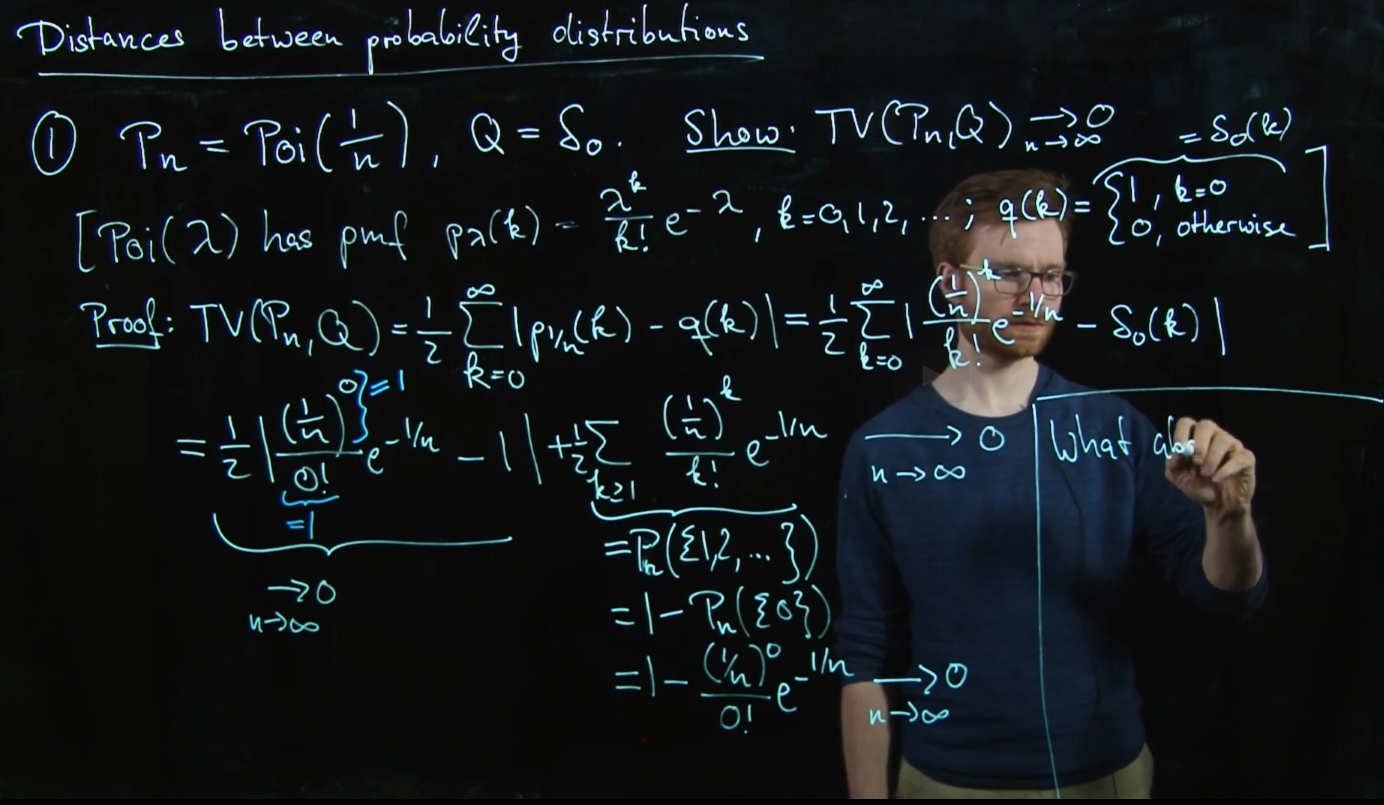 Distances between probability distributions
① Pn = Poi(1/n), Q = δ₀. Show: TV(Pn,Q) → 0 n→∞
[Poi(λ) has pmf pλ(k) = λ^k/k! e^-λ, k=0,1,2,...; q(k)= {1, k=0 {0, otherwise = δ₀(k)]
Proof: TV(Pn,Q) = 1/2 ∑_{k=0}^∞ |p1/n(k) - q(k)| = 1/2 ∑_{k=0}^∞ |(1/n)^k/k! e^-1/n - δ₀(k)|
= 1/2 |(1/n)^0/0! e^-1/n - 1| + 1/2 ∑_{k≥1} (1/n)^k/k! e^-1/n → 0 n→∞
}=1
=1
→0
n→∞
=Pn({1,2,...})
=1-Pn({0})
=1- (1/n)^0/0! e^-1/n → 0 n→∞
What abo